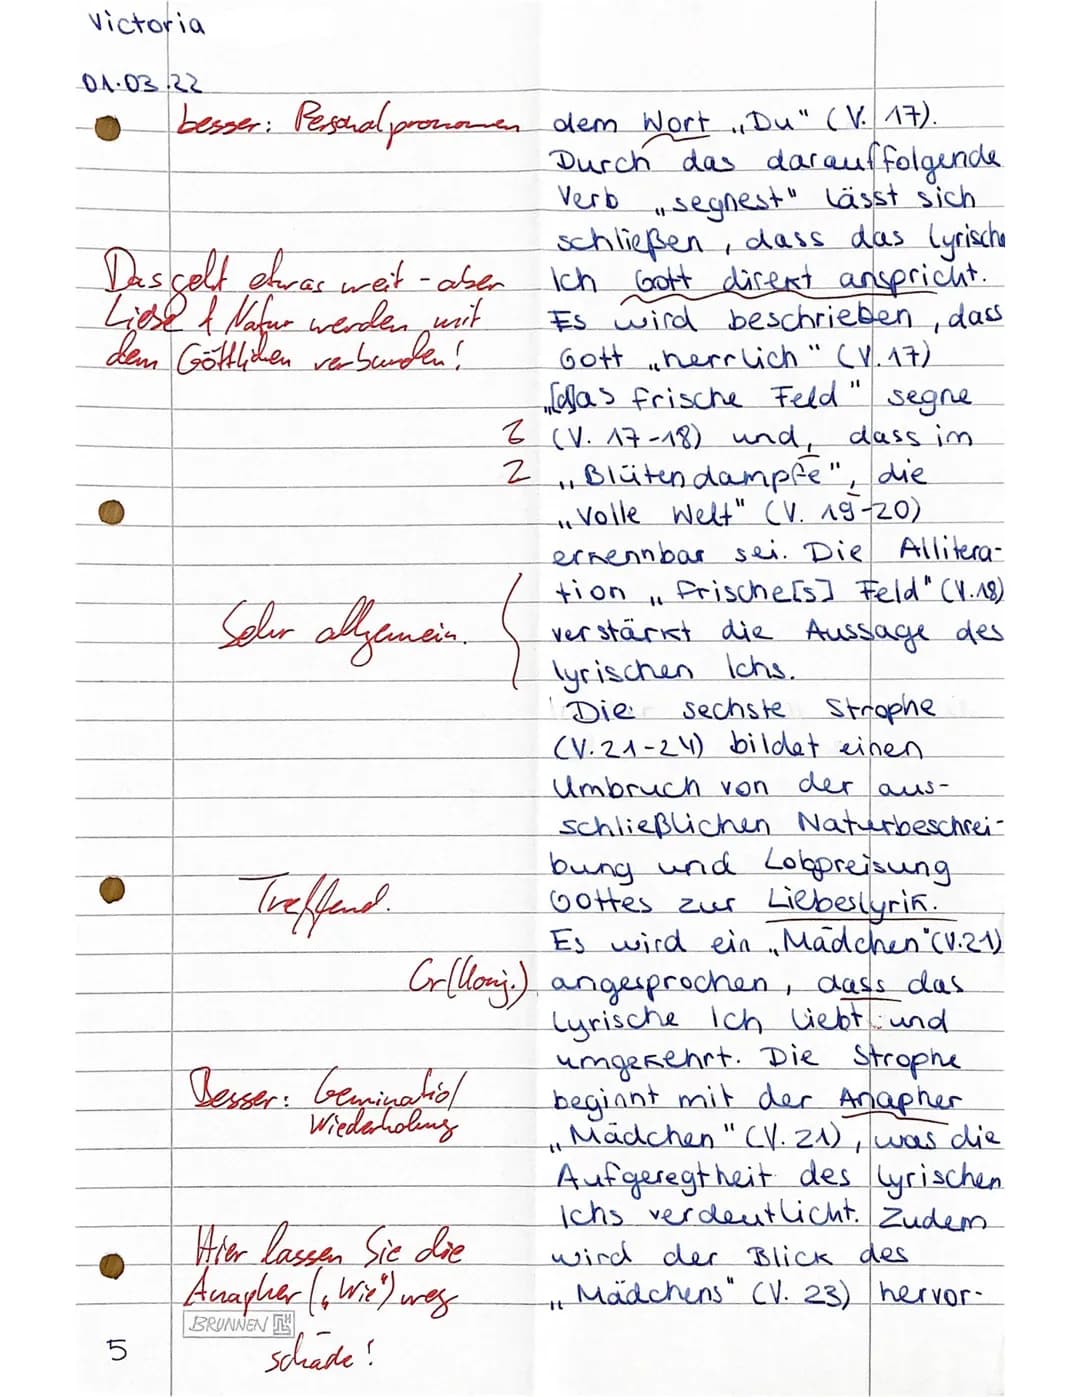 Victoria
01.03.22
besser: Personalpronomen
dem Wort „Du" (V. 17).
Durch das darauffolgende
Verb „segnest" lässt sich
schließen, dass das lyrische
Ich Gott direkt anspricht.
Das geht etwas weit - aber
Liebe & Natur werden mit
dem Göttlichen verbunden!
Es wird beschrieben, dass
Gott „herrlich" (V. 17)
„[d]as frische Feld" segne
Z (V. 17-18) und, dass im
Z „Blütendampfe", die
„Volle Welt" (V. 19-20)
erkennbar sei. Die Allitera-
tion „frische[s] Feld" (V.18)
verstärkt die Aussage des
lyrischen Ichs.
Sehr allgemein.
Die sechste Strophe
(V. 21-24) bildet einen
Umbruch von der aus-
schließlichen Naturbeschrei-
bung und Lobpreisung
Gottes zur Liebeslyrik.
Treffend.
Es wird ein „Mädchen"(V.21)
Gr(Konj.) angesprochen, dass das
lyrische Ich liebt und
umgekehrt. Die Strophe
beginnt mit der Anapher
„Mädchen" (V. 21), was die
Besser: Geminatio/
Wiederholung
Aufgeregtheit des lyrischen
Ichs verdeutlicht. Zudem
wird der Blick des
„Mädchens" (V. 23) hervor-
Hier lassen Sie die
Anapher („Wie") weg
schade!
BRUNNEN
5